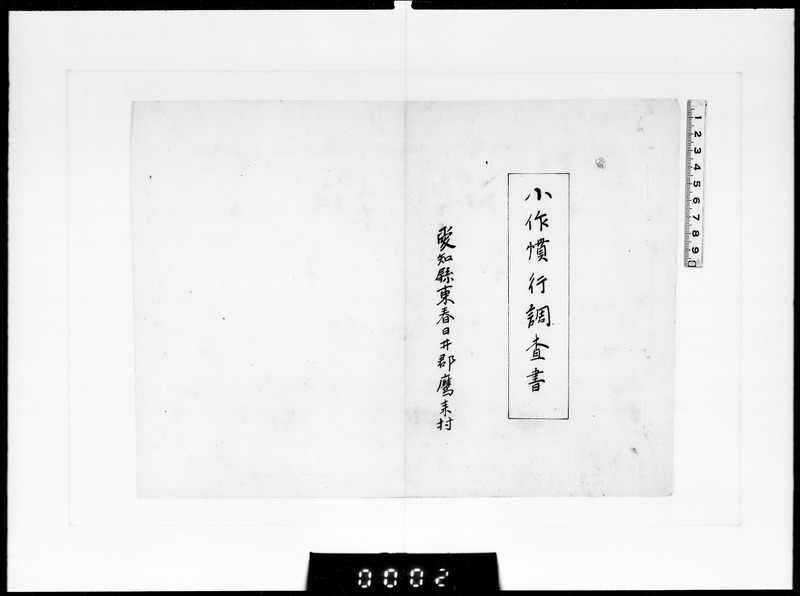 小作慣行調査書
愛知縣東春日井郡鷹来村
1 2 3 4 5 6 7 8 9
0002